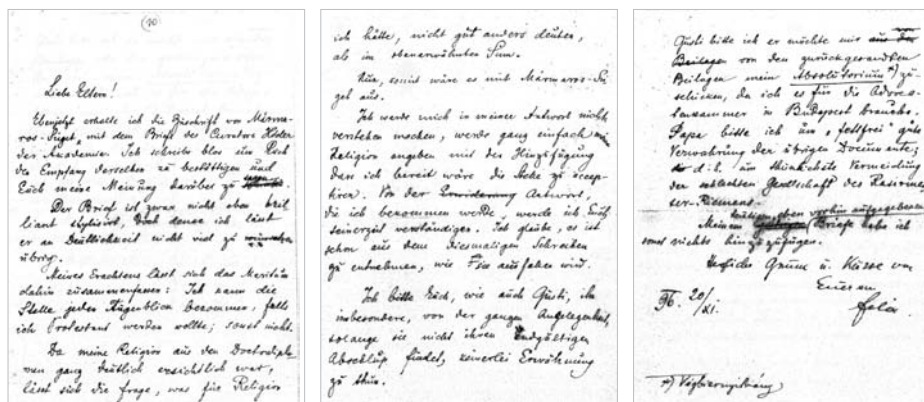 (10)
Liebe Eltern!
Ebenjetzt erhalte ich die Zuschrift von Márma-
ros-Sziget, mit dem Brief des Curators
der Akademie. Ich schreibe blos um Euch
den Empfang derselben zu bestättigen und
Euch meine Meinung darüber zu
Der Brief ist zwar nicht eben bril
liant stylisirt, doch denke ich lässt
er an Deutlichkeit nicht viel zu
übrig.
Meines Erachtens lässt sich das Meritum
dahin zusammenfassen: Ich kann die
Stelle jeden Augenblick bekommen, falls
ich Protestant werden wollte; sonst nicht.
Da meine Religion aus dem Doctordiplo
men ganz deutlich ersichtlich war,
lässt sich die Frage, was für Religion
ich hätte, nicht gut anders deuten,
als im obenerwähnten Sinn.
Nun, somit wäre es mit Mármaros-Szi
get aus.
Ich werde mich in meiner Antwort nicht
verstehen machen, werde ganz einfach
Religion angeben mit der Hinzufügung
dass ich bereit wäre die Stelle zu accep-
tiren. Von der Erwiderung Antwort,
die ich bekommen werde, werde ich Euch
seinerzeit verständigen. Ich glaube, es ist
schon aus dem diesmaligen Schreiben
zu entnehmen, wie sie ausfallen wird.
Ich bitte Euch, wie auch Gusti, ihn
insbesondere, von der ganzen Angelegenheit,
solange sie nicht ihren endgültigen
Abschluß findet, keinerlei Erwähnung
zu thun.
Gusti bitte ich er möchte mir aus den
Beilagen von den zurückgesandten
Beilagen mein Absolutorium *) zu
schicken, da ich es für die Advoca-
tenkammer in Budapest brauche.
Papa bitte ich um "fettfreie"
Verwahrung der übrigen Documente;
d. h. um thunlichste Vermeidung
der schlechten Gesellschaft des Rasirmes
ser-Riemens.
eben vorhin aufgegebenen
Meinem Briefe habe ich
sonst nichts hinzuzufügen.
Herzliche Grüsse u. Küsse von
Eurem
96. 20/XI.
*) Végbizonyítvány